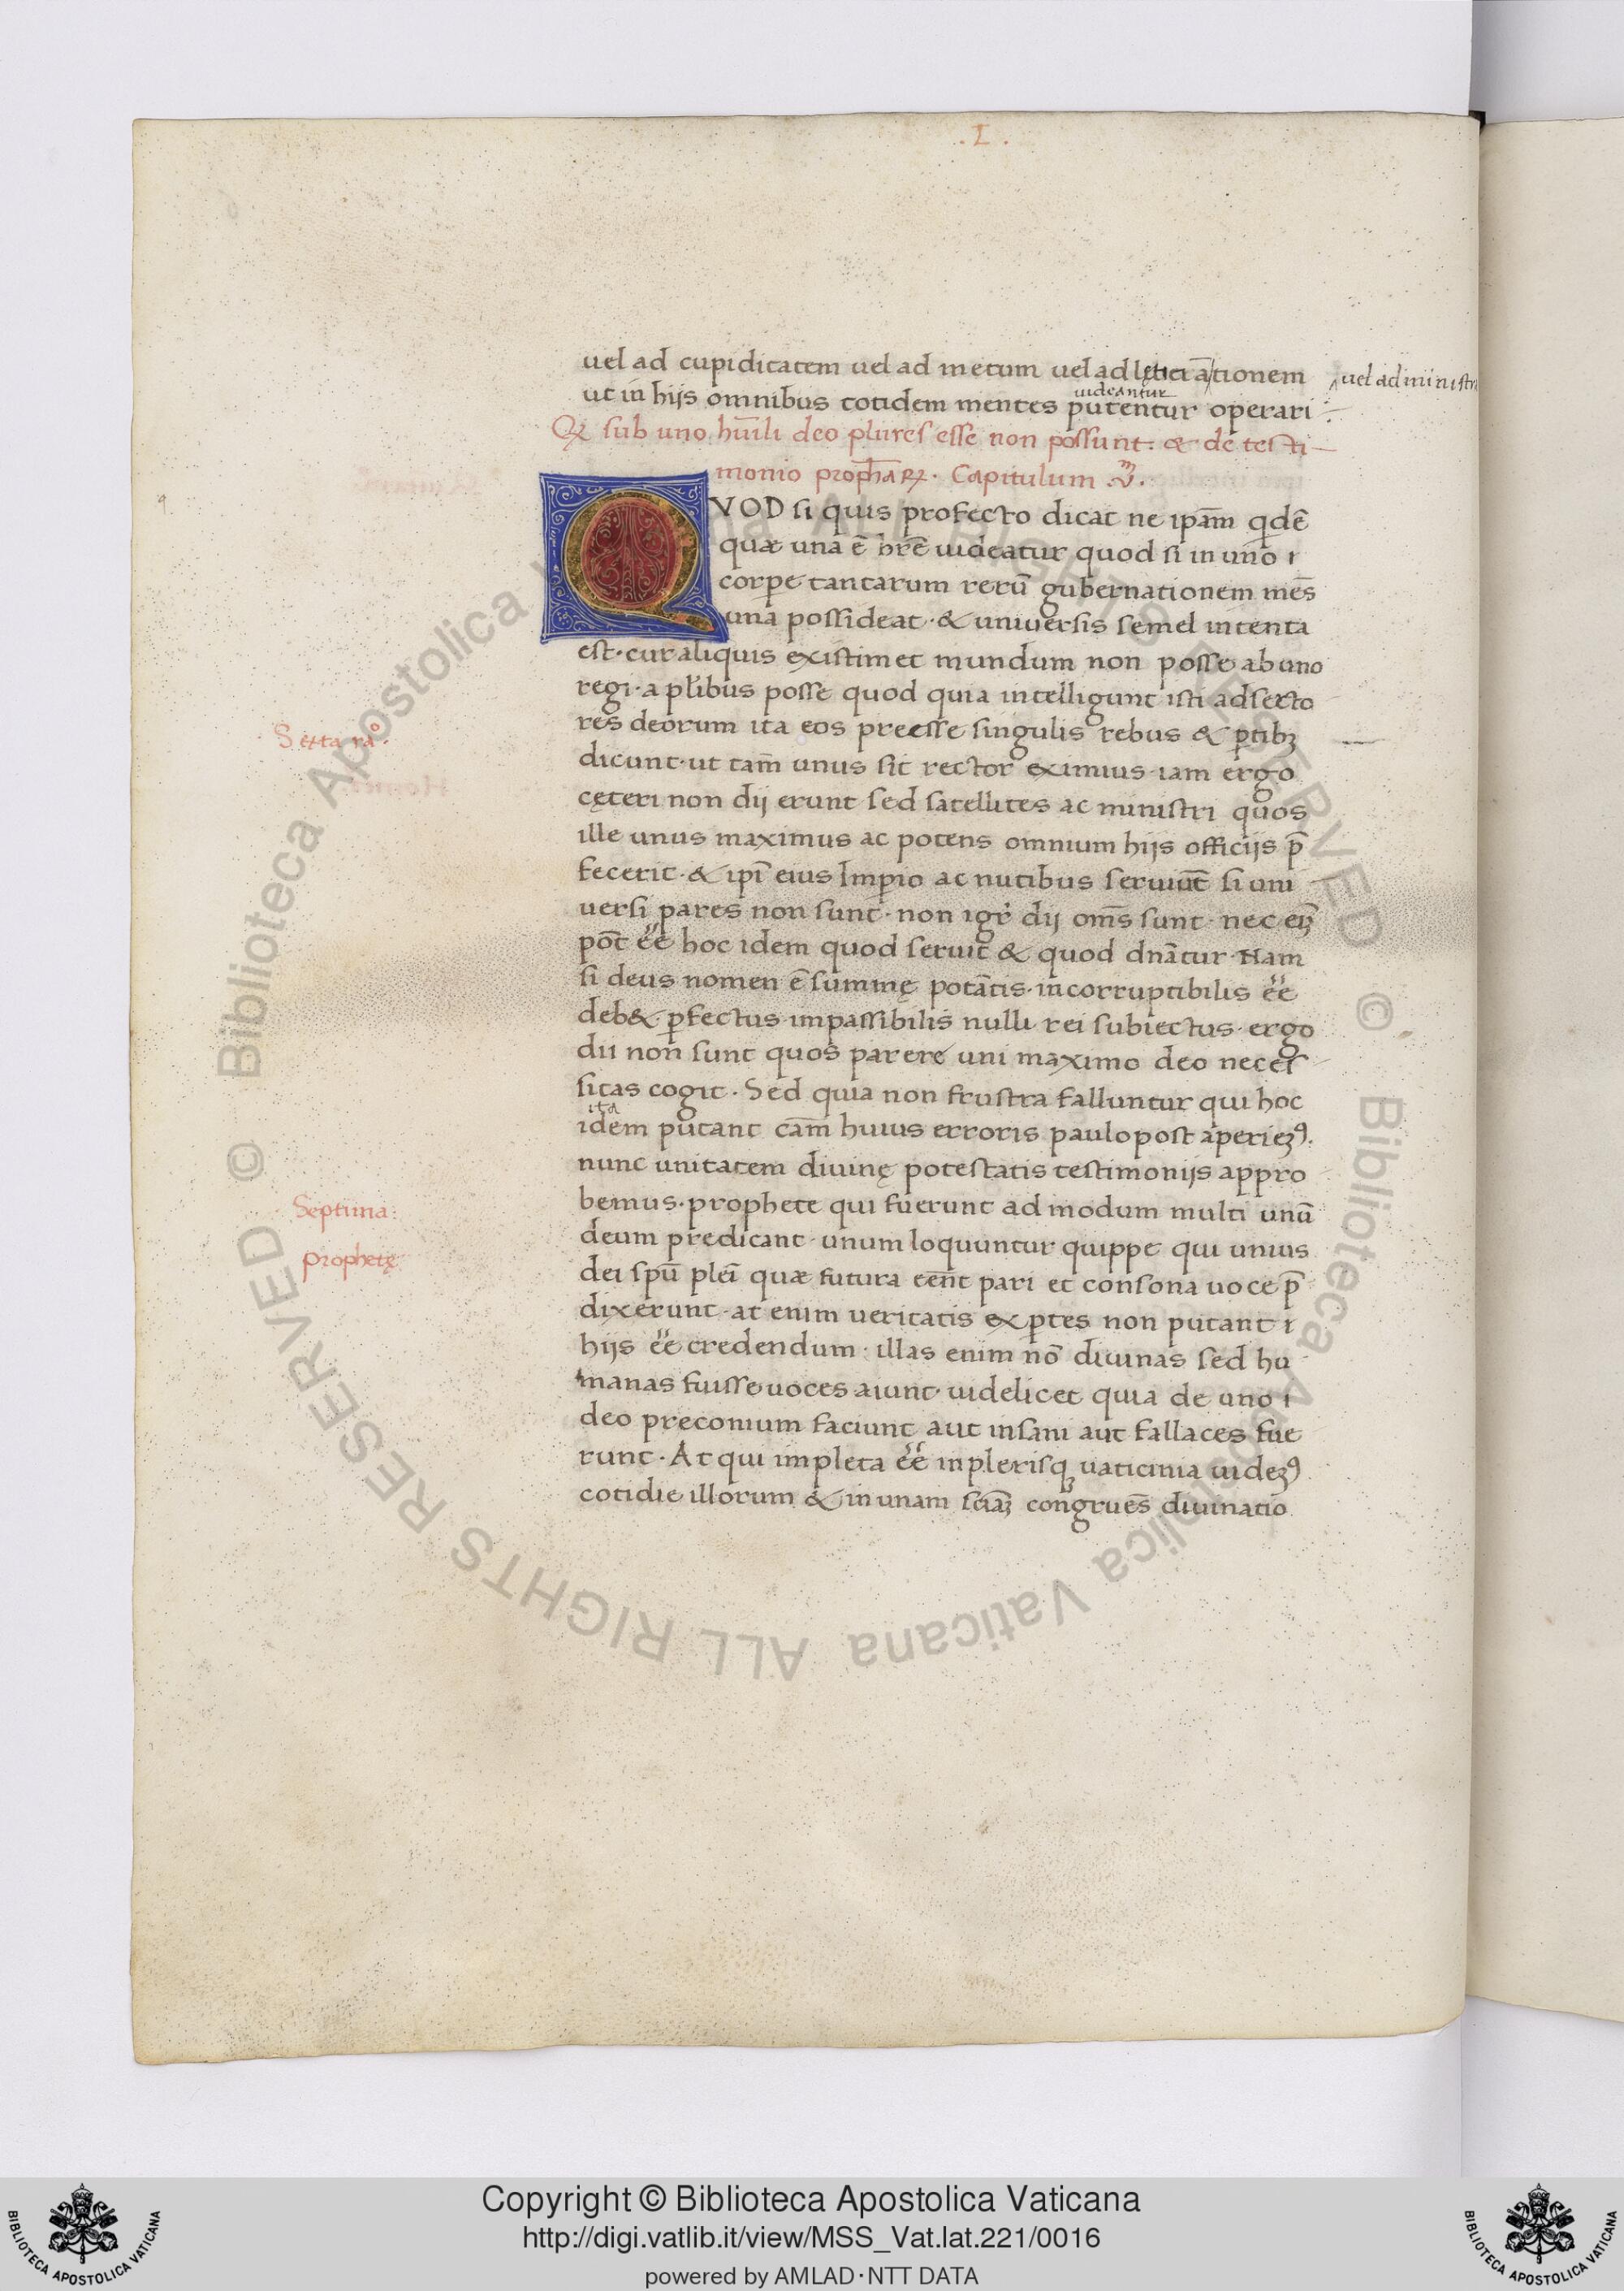 .I.
uel ad cupiditatem uel ad metum uel ad lętitiā tionem
uel administra
uideantur
ut in hijs omnibus totidem mentes putentur operari:
Qꝝ sub uno hūili deo plures esse non possunt. & de testi-
monio prophaꝝ. Capitulum .vͫ.
QVOD si quis profecto dicat ne ip̄am qͥdē
quæ una ē hr̄e uideatur quod si in uno ı
corꝑe tantarum rerū gubernationem mēs
una possideat·& uniuersis semel intenta
est·cur aliquis existimet mundum non posse ab uno
regi·a pl'ibus posse quod quia intelligunt isti adserto
res deorum ita eos preesse singulis rebus & ꝑtibꝫ
Setta rãͦ.
dicunt·ut tam̄ unus sit rector eximius·iam ergo
cęteri non dij erunt sed satellites ac ministri quos
ille unus maximus ac potens omnium hijs officijs p̄
fecerit·& ipī eius Imꝑio ac nutibus seruiūt si uni
uersi pares non sunt·non igr̃ dij om̄s sunt·nec eīꝫ
pōt e̋e hoc idem quod seruit & quod dn̄atur·Nam
si deus nomen ē summę potātis·incorruptibilis e̋e
deb& ꝑfectus·impassibilis nulli rei subiectus·ergo
dii non sunt quos parere uni maximo deo neces
sitas cogit·Sed quia non frustra falluntur qui hoc
ita
idem putant cam̄ huius erroris paulo post aperieꝫꝰ:
nunc unitatem diuinę potestatis testimonijs appro
Septima:
bemus·prophete qui fuerunt ad modum multi unū
deum predicant·unum loquuntur quippe qui unius
prophetę
dei spū pleī quæ futura eēnt pari et consona uoce p̄
dixerunt·at enim ueritatis exꝑtes non putant ı
hijs e̋e credendum·illas enim nō diuinas sed hu
manas fuisse uoces aiunt·uidelicet quia de uno ı
deo preconium faciunt aut insani aut fallaces fue
runt·At qui impleta e̋e in plerisqꝫ uaticinia uideꝫꝰ
cotidie illorum & in unam sc̄iaꝫ congruēs diuinatio
Copyright © Biblioteca Apostolica Vaticana
http://digi.vatlib.it/view/MSS_Vat.lat.221/0016
powered by AMLAD·NTT DATA
BIBLIOTECA APOSTOLICA VATICANA
BIBLIOTECA APOSTOLICA VATICANA
© Biblioteca Apostolica Vaticana ALL RIGHTS RESERVED © Biblioteca Apostolica Vaticana ALL RIGHTS RESERVED